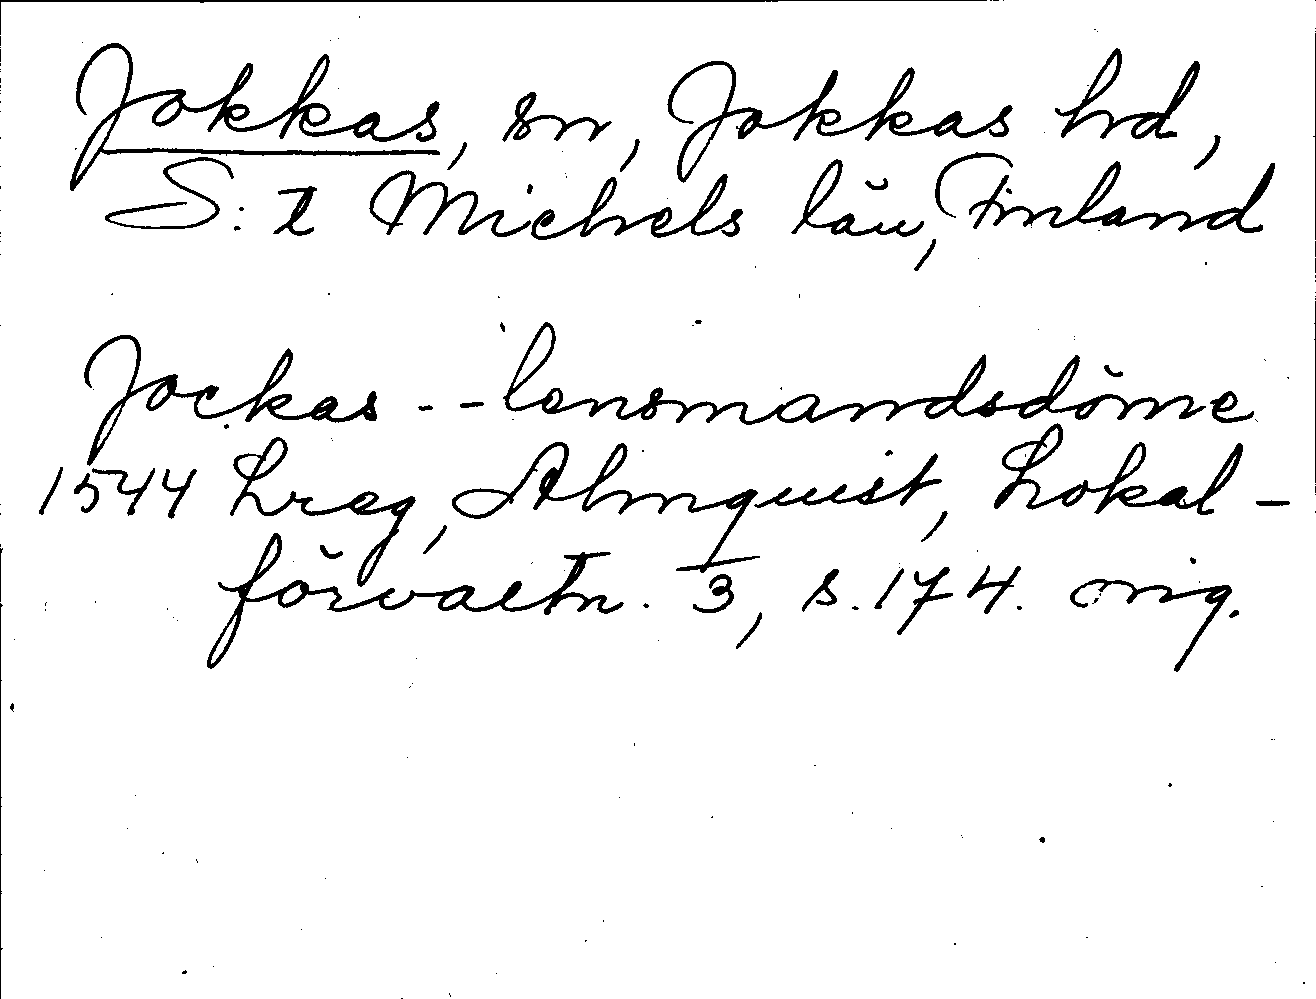 Jokkas, sn, Jokkas hrd,
S:t Michels län, Finland
Jockas -- lensmandsdöme
1544 Lreg, Almquist, Lokal-
förvaltn. 3, s. 174. orig.